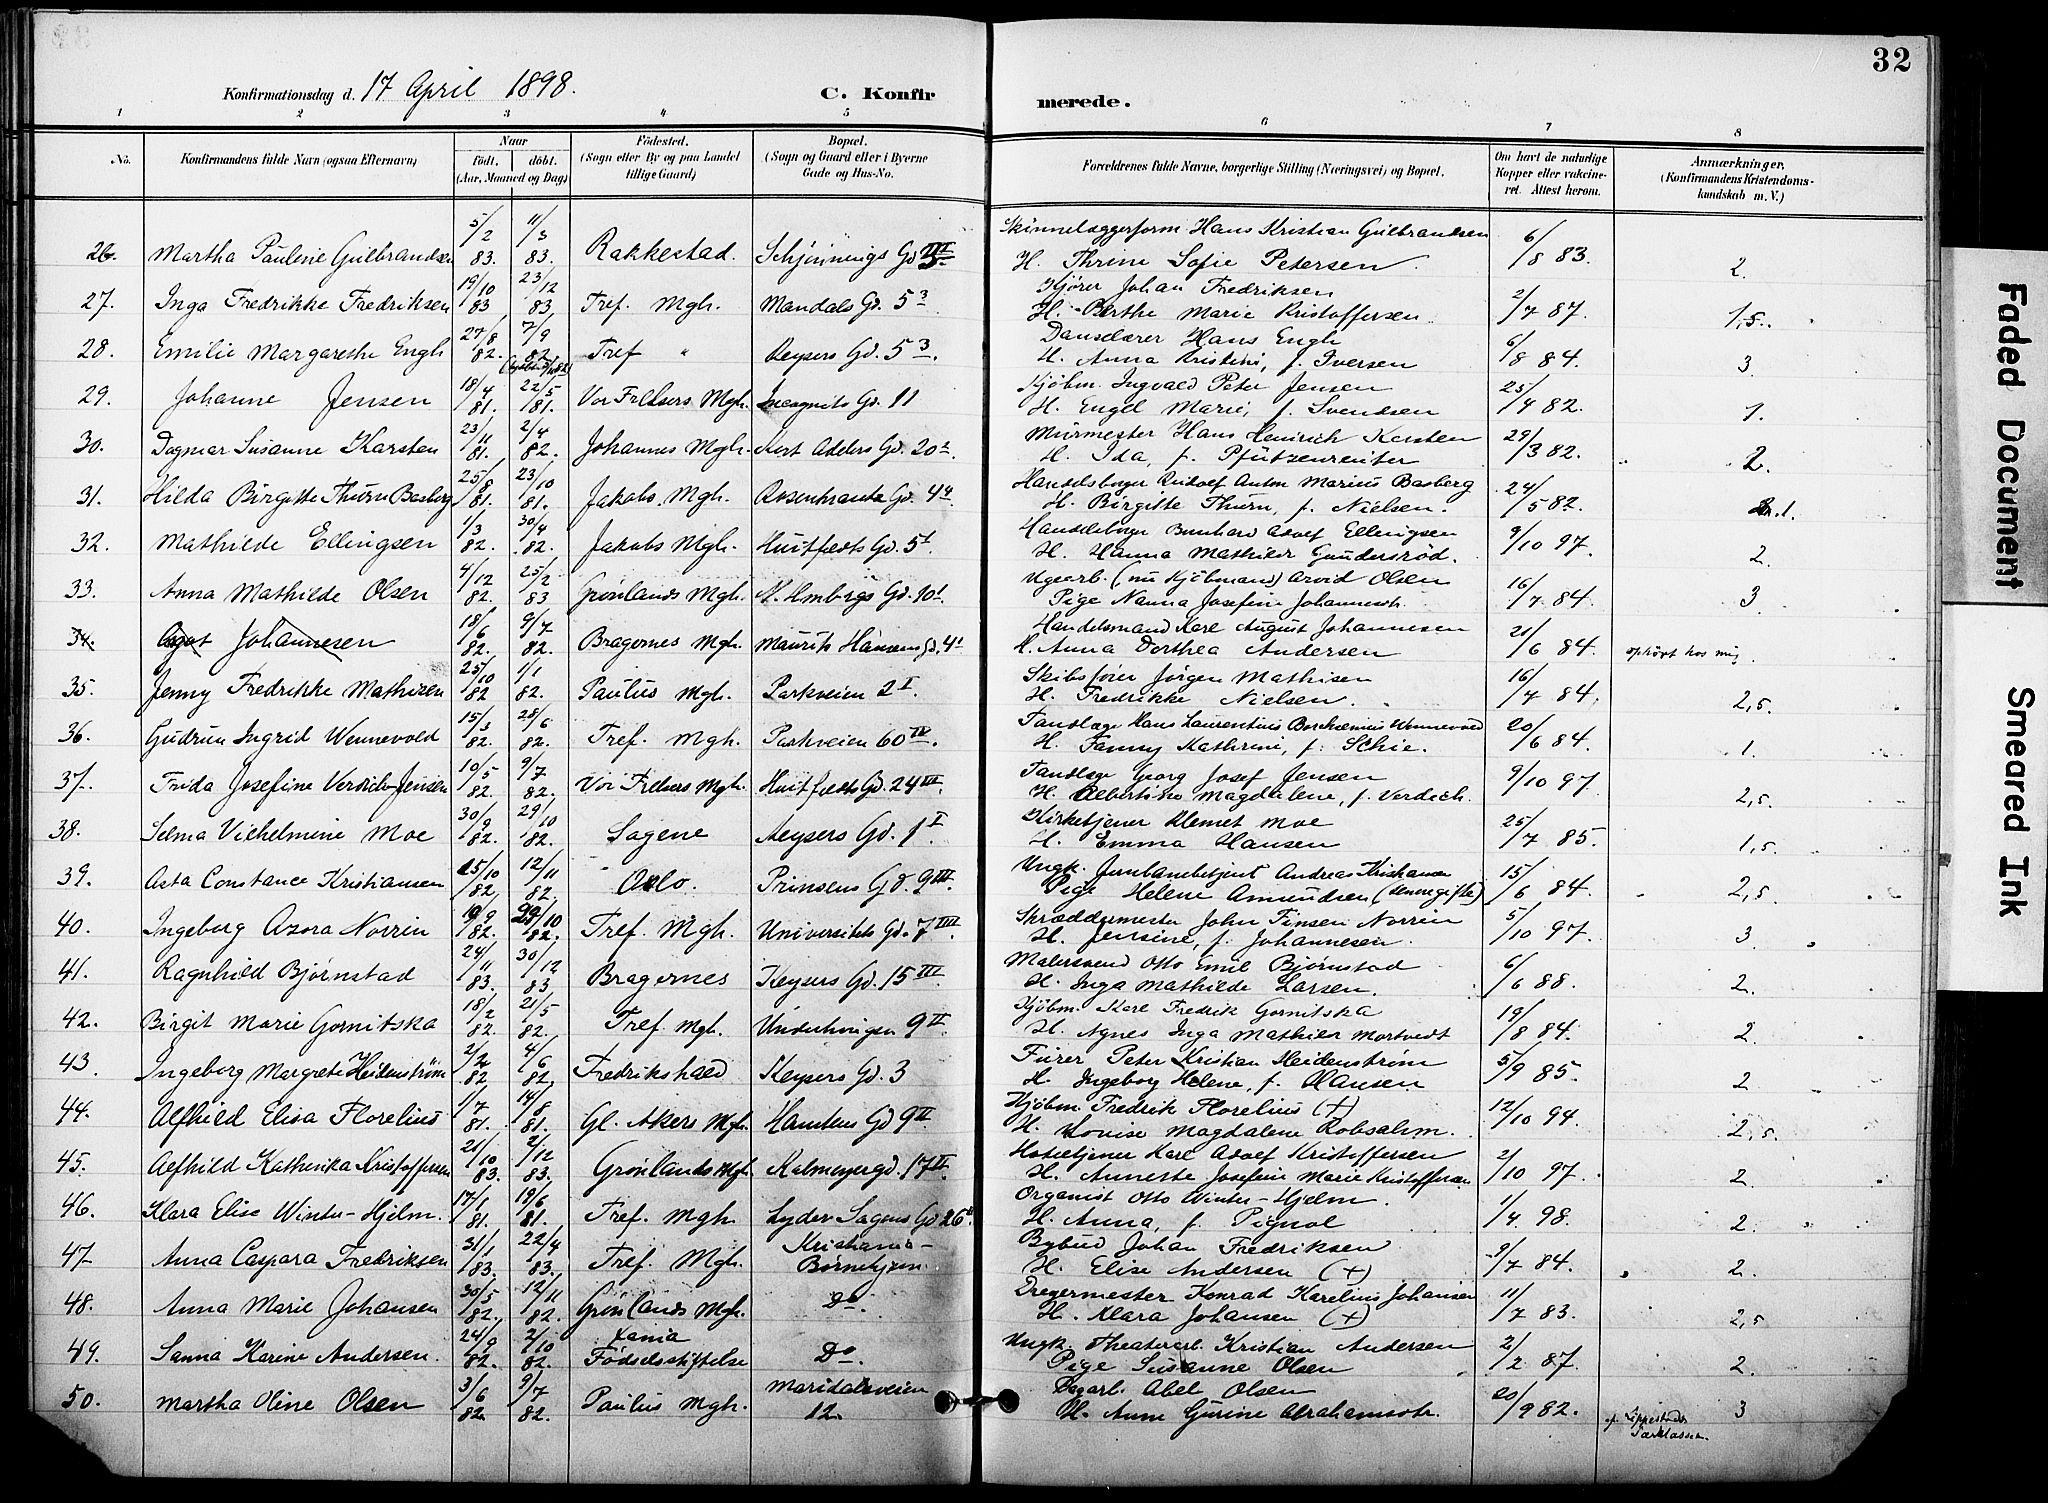 32
Konfirmationsdag d. 17 April 1898.
C. Konfirmerede.
1 2 3 4 5 6 7 8
No.
Konfirmandens fulde Navn (ogsaa Efternavn)
Naar født, døbt. (Aar, Maaned og Dag)
Fødested. (Sogn eller By og paa Landet tillige Gaard)
Bopæl. (Sogn og Gaard eller i Byerne Gade og Hus-No.
Forældrenes fulde Navne, borgerlige Stilling (Næringsvei) og Bopæl.
Om havt de naturlige Kopper eller vakcineret. Attest herom.
Anmærkninger. (Konfirmandens Kristendomskundskab m. V.)
26. Martha Pauline Gulbrandsen 5/2 83. 11/3 83. Rakkestad. Schjønnings Gd III Hans Kristian Gulbrandsen H. Thrine Sofie Petersen. 6/8 83. 2.
27. Inga Fredrikke Fredriksen 19/10 83 23/12 83, Tref. Mgh. Mandals Gd. 5 3 Kjører Johan Fredriksen H. Berthe Marie Kristoffersen 2/7 87. 1,5.
28. Emilie Margarethe Engh 27/8 82. 7/9 82 Tref " Keysers Gd. 5 3. Danselærer Hans Engh H. Anna Kristine, f. Iversen 6/8 84. 3.
29. Johanne Jensen 18/4 81. 22/5 81. Vor Frelsers Mgh. Incognito Gd. 11 Kjøbm. Ingvald Peter Jensen H. Engel Marie, f. Svendsen 25/4 82. 1.
30. Dagmar Susanne Karsten 23/11 81. 2/4 82. Johannes Mgh. Kort Adelers Gd. 20 Murmester Hans Heinrich Kersten H. Ida, f. Pfützenreuter 29/3 82. 2.
31. Hilda Birgitte Thurn Basberg 25/8 81. 23/10 81. Jakobs. Mgh. Rosenkrantz Gd. 4 Handelsborger Rudolf Anton Marius Basberg H. Birgitte Thurn, f. Nielsen. 24/5 82. 1.
32. Mathilde Ellingsen 1/3 82. 30/4 82. Jakobs Mgh. Huitfeldts Gd. 5 Handelsborger Bernhard Adolf Ellingsen H. Hanna Mathilde Gundersrød. 9/10 97. 2.
33. Anna Mathilde Olsen 4/12 82. 25/2 83 Grønlands Mgh. Gd. 10 Ugearb. (nu Kjøbmand) Arvid Olsen Pige Nanna Josefine Johannesdt. 16/7 84. 3
34. Johannesen 18/6 82. 9/7 82. Bragernes Mgh. Maurits Hansens Gd. 4 Handelsmand Karl August Johannesen H. Anna Dorthea Andersen 21/6 84. ophørt hos mig.
35. Jenny Fredrikke Mathisen 25/10 82 1/1 82. Paulus Mgh. Parkveien 2 I. Skibsfører Jørgen Mathisen H. Fredrikke Nielsen. 16/7 84. 2,5.
36. Gudrun Ingrid Wennevold 15/3 82. 28/6 82. Tref. Mgh. Parkveien 60 IV. Tandlæge Hans Laurentius Wennevold H. Fanny Kathrine, f. Schie. 20/6 84. 1.
37. Frida Josefine Jensen 10/5 82. 9/7 82. Vor Frelsers Mgh. Huitfeldts Gd. 24 III. Tandlæge Georg Josef Jensen H. Albertine Magdalene, f. Verdich. 9/10 97. 2,5.
38. Selma Vilhelmine Moe 30/9 82. 29/10 82. Sagene Keysers Gd. 1 I. Kirketjener Klemet Moe H. Emma Hansen 25/7 85. 1,5.
39. Asta Constance Kristiansen 15/10 82, 12/11 82. Oslo. Prinsens Gd. 9 III. Ungk. Jernbanebetjent Andreas Kristiansen Pige Helene Amundsen (senere gifte) 15/6 84. 2,5.
40. Ingeborg Azora Norrin 19/9 82. 29/10 82. Tref. Mgh. Universitets Gd. 7 III. Skræddermester John Finsen Norrin H. Jensine, f. Johannesen. 5/10 97. 3.
41. Ragnhild Bjørnstad 24/11 83. 30/12 83 Bragernes Keysers Gd. 15 III. Malersvend Otto Emil Bjørnstad H. Inga Mathilde Larsen. 6/6 88. 2.
42. Birgit Marie Gornitska 18/2 82. 21/5 82. Tref. Mgh. Underhaugsv 9 II Kjøbm. Karl Fredrik Gornitska H. Agnes Inga Mathilde Mortvedt 19/8 84. 2.
43. Ingeborg Margrete Heidenstrøm 2/2 82. 4/6 82. Fredrikshald Keysers Gd. 3 Furer Peter Kristian Heidenstrøm H. Ingeborg Helene, f. Hansen 5/9 85. 2.
44. Alfhild Elisa Florelius 1/7 81. 14/8 81. Gl. Akers Mgh. Hansteens Gd 9 II. Kjøbm Fredrik Florelius (+) H. Louise Magdalene Robsahm. 12/10 94. 2,5.
45. Alfhild Kathinka Kristoffersen 21/10 83. 2/12 83. Grønlands Mgh. Kalmeyergd. 17 II. Hoteltjener Karl Adolf Kristoffersen H. Anneste Josefine Marie Kristoffersen 2/10 97. 2.
46. Klara Elise Winter-Hjelm. 17/1 81. 19/6 81. Tref. Mgh. Lyder Sagens Gd 26 Organist Otto Winter-Hjelm. H. Anna, f. Pignol 1/4. 98. 2.
47. Anna Caspara Fredriksen 31/1 83. 22/4 83. Tref. Mgh. Kristiania Børnehjem. Bybud Johan Fredriksen H. Elise Andersen (+) 9/7 84. 2.
48. Anna Marie Johansen 30/5 82. 12/11 82. Grønlands Mgh. Do. Dreiermester Konrad Karelius Johansen H. Klara Johansen (+) 11/7 83. 2,5
49. Sanna Karine Andersen. 24/9 82. 2/10 82. Xania Fødselsstiftelse Do. Ungk. Theaterarb. Kristian Andersen Pige Susanne Olsen 2/2 87. 2.
50. Martha Oline Olsen 3/6 82. 9/7 82. Paulus Mgh. Maridalsveien 12. Dagarb. Abel Olsen H. Anne Gurine Abrahamsdtr. 20/9 82. 3
Faded Document
Smeared Ink